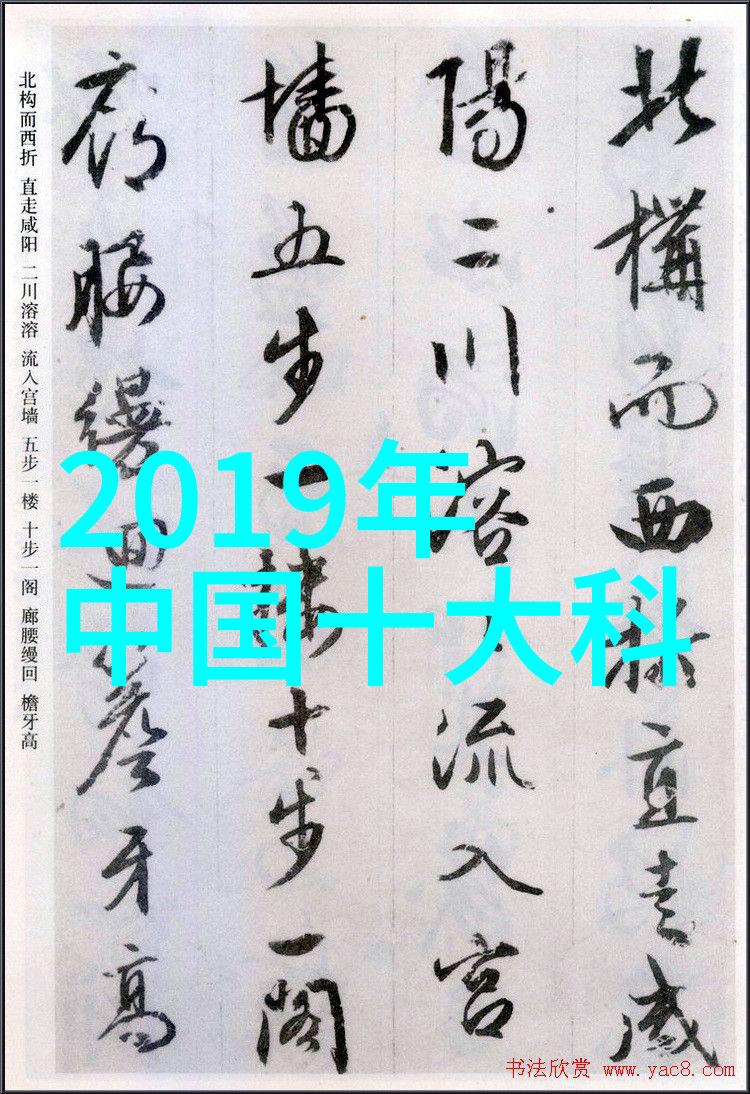 北構而西折直走咸
陽二川溶〻流入宫
墻五步一樓十步一閣
廊腰縵迴簷牙高
北构而西折 直走咸阳 二川溶溶 流入宫墙 五步一楼 十步一阁 廊腰缦回 檐牙高
2019年
中国十大科
书法欣赏 www.yac8.com